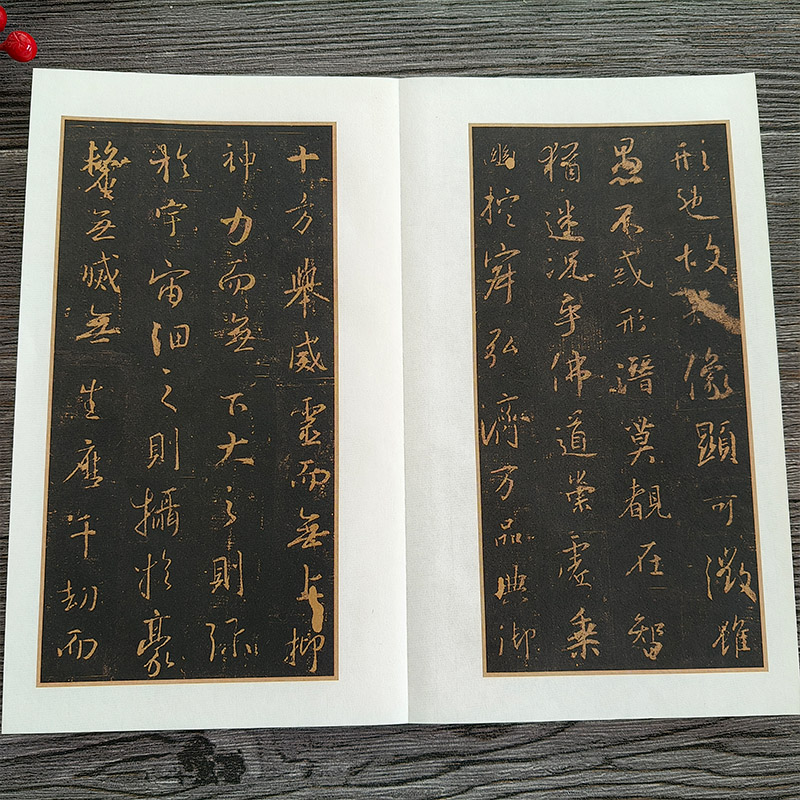 形也故像顯可徵雖
愚不惑形潛莫覩在智
猶迷況乎佛道崇虛乘
幽控寂弘濟万品典御
十方舉威靈而無上抑
神力而無下大之則弥
於宇宙細之則攝於豪
釐無滅無生歷千劫而